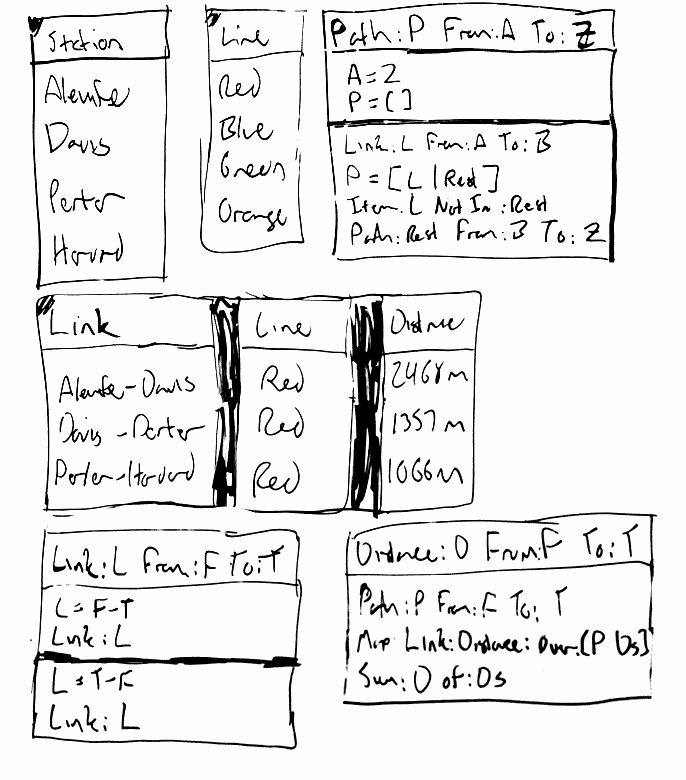 Station
Alewife
Davis
Porter
Harvard
Line
Red
Blue
Green
Orange
Path:P From:A To:Z
A=Z
P=[]
Link:L From:A To:B
P=[L|Rest]
Item:L Not In:Rest
Path:Rest From:B To:Z
Link Line Distance
Alewife-Davis Red 2468m
Davis-Porter Red 1357m
Porter-Harvard Red 1066m
Link:L From:F To:T
L=F-T
Link:L
L=T-F
Link:L
Distance:D From:F To:T
Path:P From:F To:T
Map Link:Distance:Over:[P Ds]
Sum:D of:Ds